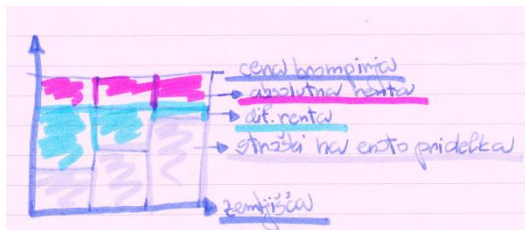 cena krompirja
absolutna renta
dif. renta
stroški na enoto pridelka
zemljišča